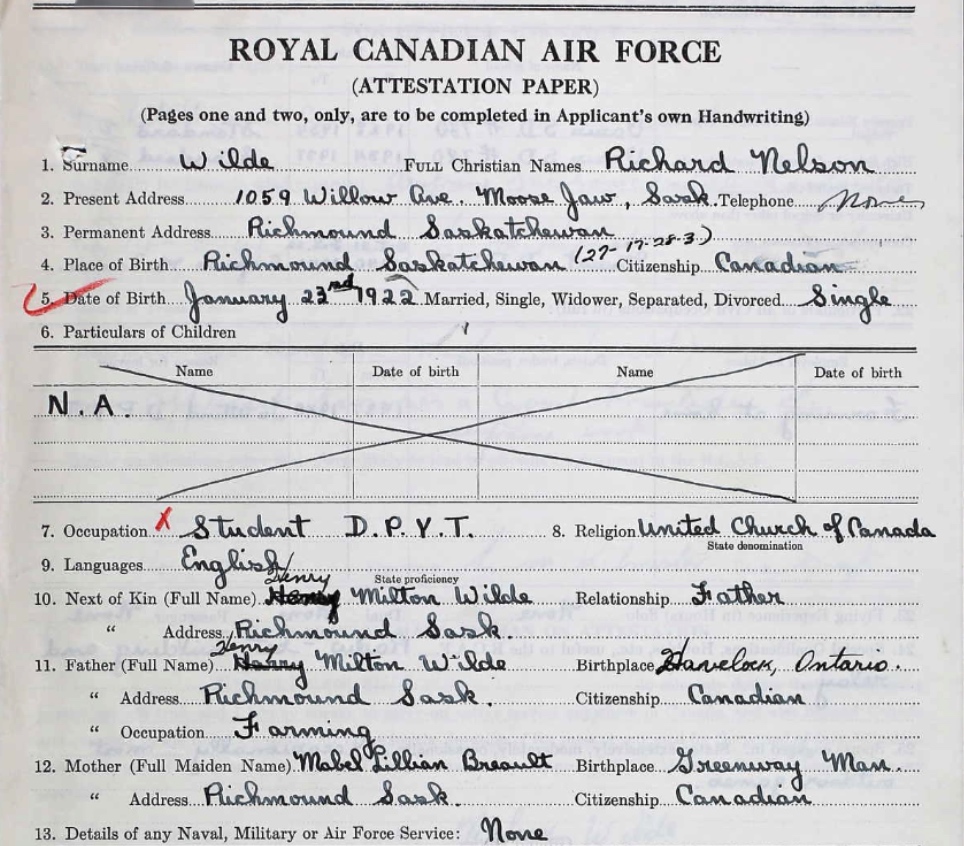 ROYAL CANADIAN AIR FORCE
(ATTESTATION PAPER)
(Pages one and two, only, are to be completed in Applicant's own Handwriting)
1. Surname Wilde FULL Christian Names Richard Nelson
2. Present Address 1059 Willow Ave. Moose Jaw, Sask. Telephone None
3. Permanent Address Richmound Saskatchewan
4. Place of Birth Richmound Saskatchewan (27-17-28-3) Citizenship Canadian
5. Date of Birth January 22nd 1922 Married, Single, Widower, Separated, Divorced Single
6. Particulars of Children
Name Date of birth Name Date of birth
N.A.
7. Occupation X Student D.P.Y.T. 8. Religion United Church of Canada
State denomination
9. Languages English
State proficiency
10. Next of Kin (Full Name) Henry Milton Wilde Relationship Father
" Address Richmound Sask.
11. Father (Full Name) Henry Harry Milton Wilde Birthplace Havelock, Ontario.
" Address Richmound Sask. Citizenship Canadian
" Occupation Farming
12. Mother (Full Maiden Name) Mabel Lillian Breault Birthplace Greenway Man.
" Address Richmound Sask. Citizenship Canadian
13. Details of any Naval, Military or Air Force Service: None